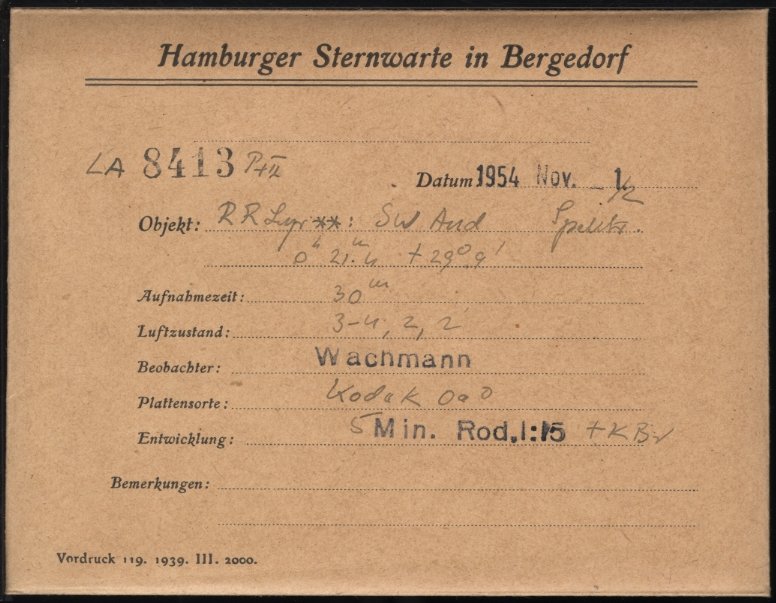 Hamburger Sternwarte in Bergedorf
LA 8413 P+II
Datum 1954 Nov. 1. 1/2
Objekt: RR Lyr **: SW And Spektr.
0ʰ 21.4ᵐ +29° 9'
Aufnahmezeit: 30ᵐ
Luftzustand: 3-4, 2, 2
Beobachter: Wachmann
Plattensorte: Kodak OaO
Entwicklung: 5 Min. Rod. 1:15 + KBr
Bemerkungen:
Vordruck 119. 1939. III. 2000.